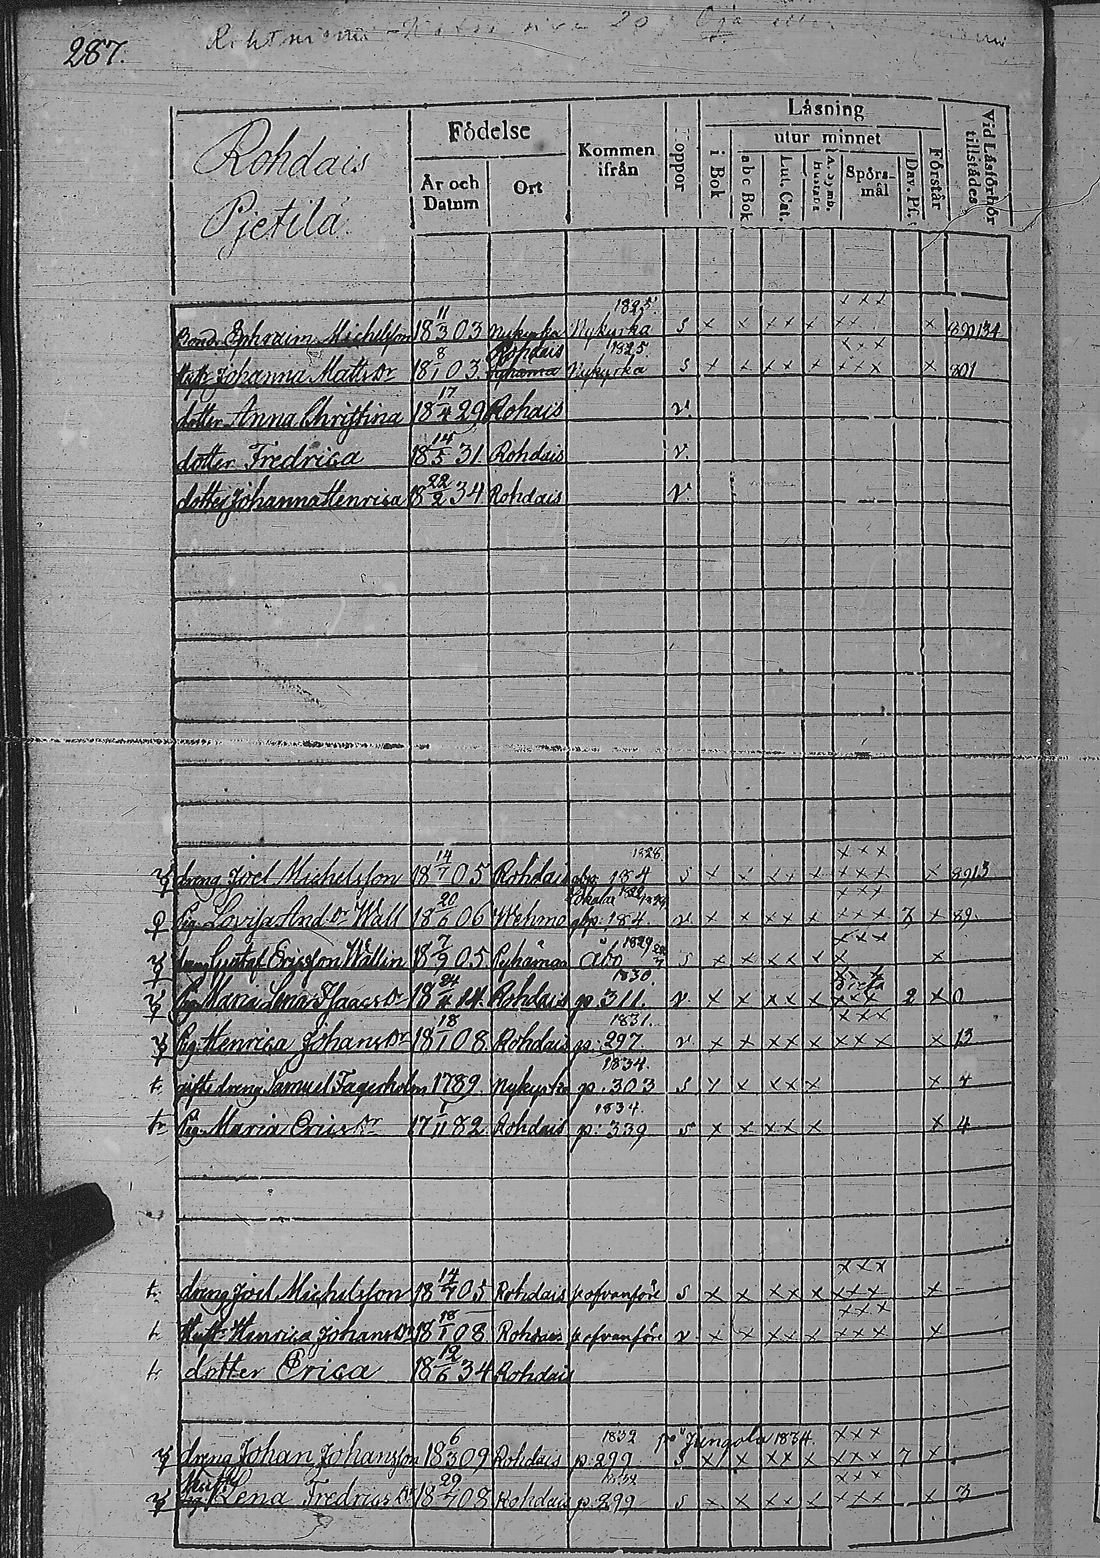 287.
Rohdais
Pjetilä.
Födelse
År och Datum
Ort
Kommen ifrån
oppor
Låsning
i Bok
utur minnet
abc Bok
Lut. Cat.
A. Symb. Hustafla
Spörsmål
Dav. Ps.
Förstår
Vid Läsförhör tillstädes
Bond. Ephraim Michelsson 18 11/3 03 Nykyrka 1825. Nykyrka s x x x x x x x x x x x x
hust. Johanna Matts Dr 18 8/1 03 Rohdais 1825. Nykyrka s x x x x x x x x x x x x 801
dotter Anna Christina 18 17/4 29 Rohdais v
dotter Fredrica 18 14/5 31 Rohdais v.
dotter Johanna Henrica 18 22/2 34 Rohdais v
dreng Joel Michelsson 18 14/7 05 Rohdais 1828 184 s x x x x x x x x x x x x 8913
pig. Lovisa And. Dr Wall 18 20/6 06 Wehmo 184 v x x x x x x x x x x x 7 x 89
dreng Gustaf Ericsson Wallin 18 7/9 05 Pyhämaa Åbo 1829 s x x x x x x x x x x
pig. Maria Lena Isaacs Dr 18 24/4 14 Rohdais 1830. p: 311. v x x x x x x x x 2 x 0
pig. Henrica Johans Dr 18 18/1 08 Rohdais 1831. p: 297 v x x x x x x x x x x x x 13
t. gifte dreng Samuel Fagerholm 1789 Nykyrka 1834. p: 303 s x x x x x x 4
t. pig. Maria Erics Dr 17 1/11 82 Rohdais 1834. p: 339 s x x x x x x 4
t. dreng Joel Michelsson 18 14/7 05 Rohdais p ofvanföre s x x x x x x x x x x x x
t. Hust. Henrica Johans Dr 18 18/1 08 Rohdais p ofvanföre v x x x x x x x x x x x x
t. dotter Erica 18 12/6 34 Rohdais
dreng Johan Johansson 18 6/3 09 Rohdais 1832 p: 299 på Jungola 1834. s x x x x x x x x x x x 7 x
Hust. Lena Fredrics Dr 18 29/7 08 Rohdais 1832 p: 299 s x x x x x x x x x x x x 3